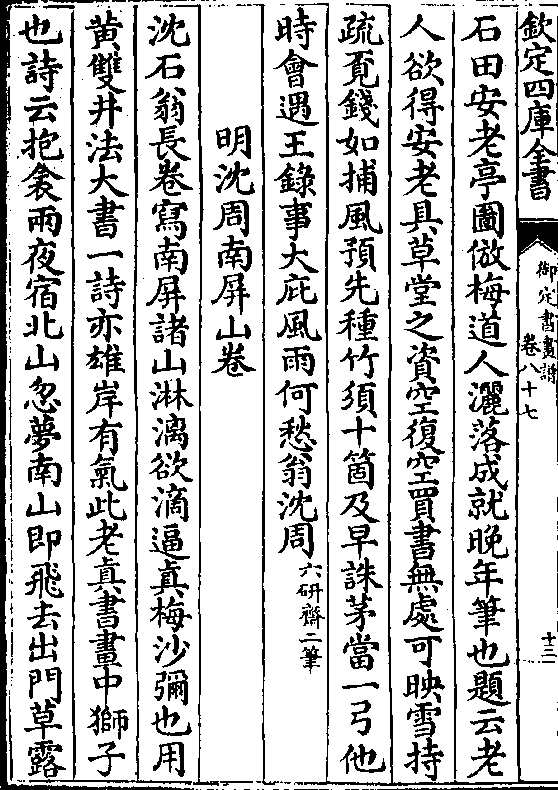 欽定四庫全書
御定書畫譜
卷八十七
十三
石田安老亭圖倣梅道人灑落成就晚年筆也題云老
人欲得安老具草堂之資空復空買書無處可映雪持
疏覓錢如捕風預先種竹須十箇及早誅茅當一弓他
時會遇王錄事大庇風雨何愁翁沈周六研齋二筆
明沈周南屏山卷
沈石翁長卷寫南屏諸山淋漓欲滴逼眞梅沙彌也用
黄雙井法大書一詩亦雄岸有氣此老眞書畫中獅子
也詩云抱衾雨夜宿北山忽夢南山即飛去出門草露